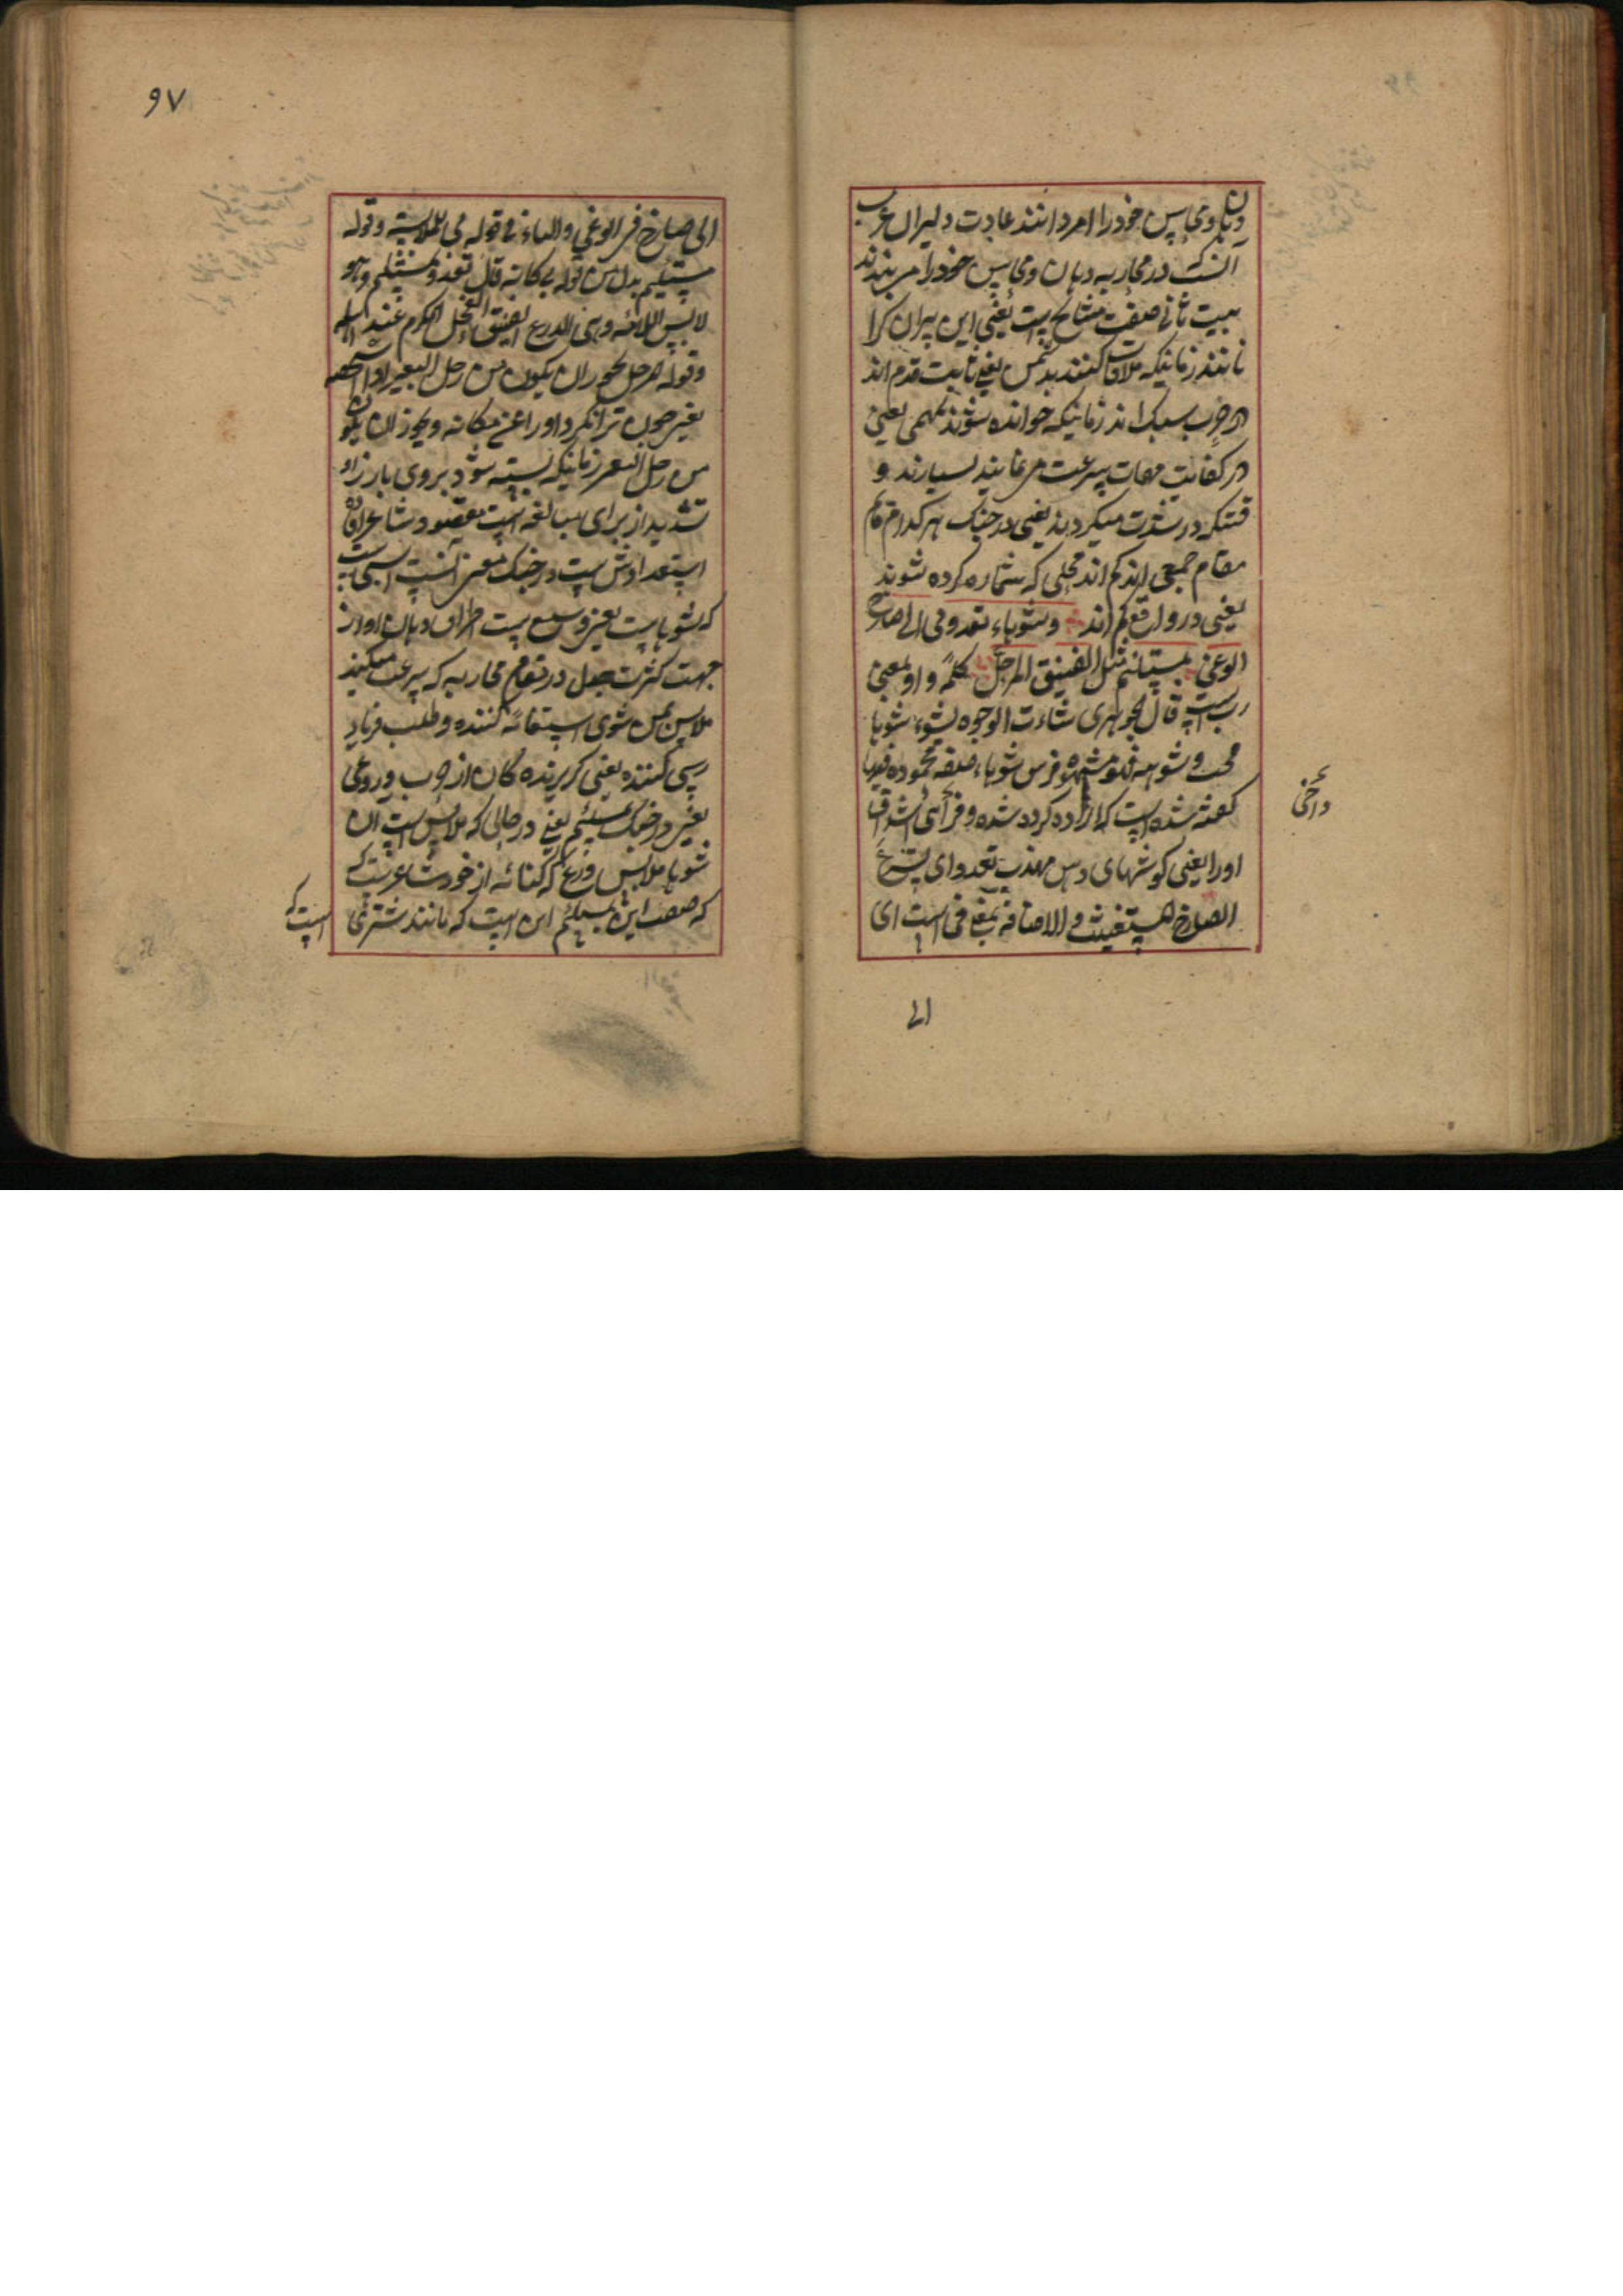 دهان و محاسن خود را امرد انند عادت دلیران عرب
آنست که در محاربه دهان و محاسن خود را می بندند
بیت ثانی صفت مشایخ است یعنی این پیران کرا
مانند زمانیکه ملاقات کنند بدشمن یعنی ثابت قدم اند
در حرب سبک اند زمانیکه خوانده شوند بمهمی یعنی
در کفایت مهمات سرعت می نمایند بسیارند و
قتیکه در شدت میکردند یعنی در جنک هر کدام قائم
مقام جمعی اند کم اند محلی که شماره کرده شوند
یعنی در واقع کم اند وشوهاء تعدو بی الی صارخ
الوغی بمستلئم مثل الفنیق المرحل کلمه واو بمعنی
رب است قال الجوهری شاهت الوجوه تشوه شوها
قبحت و شوهه فهو مشوه و فرس شوهاء صفة محموده فیها
گفته شده است که اراده کرده شده فراخی اشداق
او را یعنی کوشهای دهن مهذب تعدو ای تسرع
الصارخ المستغیث و الاضافة بمعنی فی است ای
واخی
الی
۹۷
الی صارخ فی الوغی والباء فی قوله بی للملابسة وقوله
مستلیم بدل من قوله بی کانه قال تعدو بمستلیم وهو
لابس اللامه وهی الدرع الفنیق الفحل المکرم عند اهله
وقوله المرحل یجوز ان یکون من رحل البعیر اذا اشخصه
یعنی چون ترا نکرد او را عن مکانه ویجوز ان یکون
من رحل البعیر زمانیکه بسته شود بر وی بار زاو
تشدید از برای مبالغه است مقصود شاعر افاده
استعداد خویش است در جنک معنی آنست اسبی است
که شوها است یعنی وسیع است اطراف دهان او از
جهت کثرت صهل در مقام محاربه که سرعت میکند
ملابس بمن سوی استغاثه کننده و طلب فریاد
رسی کننده یعنی کریزنده کان از حرب در وغی
یعنی در جنک بمستلئم یعنی در حالی که ملابس است آن
شوها ملابس درع که کنایه از خود شاعر نیست که
که صفت این مستلئم این است که مانند شتری
است که